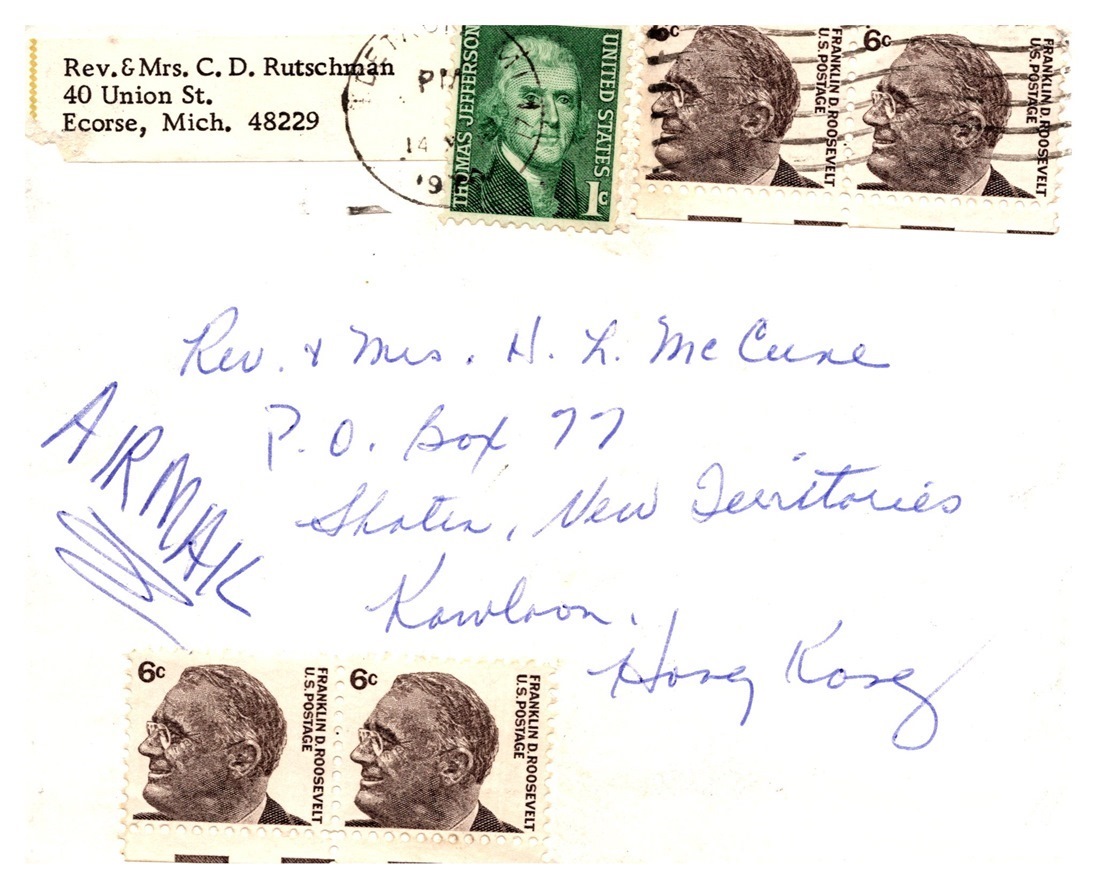 Rev. & Mrs. C. D. Rutschman
40 Union St.
Ecorse, Mich. 48229
PM
14
19
THOMAS JEFFERSON
UNITED STATES
1c
6c
FRANKLIN D. ROOSEVELT
U.S. POSTAGE
6c
FRANKLIN D. ROOSEVELT
U.S. POSTAGE
Rev. & Mrs. H. L. McCune
P. O. Box 77
Shatin, New Territories
Kowloon.
Hong Kong
AIRMAIL
6c
FRANKLIN D. ROOSEVELT
U.S. POSTAGE
6c
FRANKLIN D. ROOSEVELT
U.S. POSTAGE